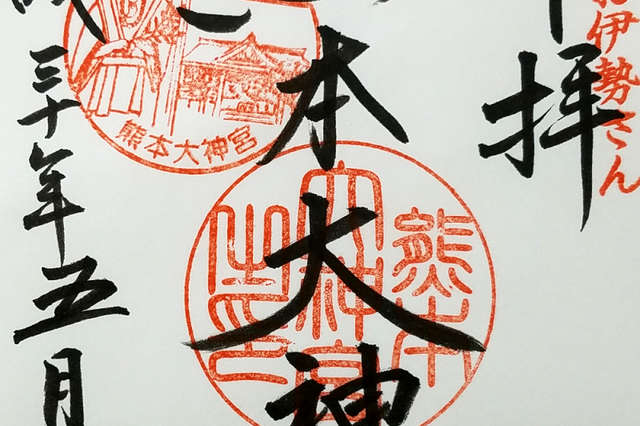 お伊勢さん
拝
本大神
熊本大神宮
熊本
大神宮
三十年五月